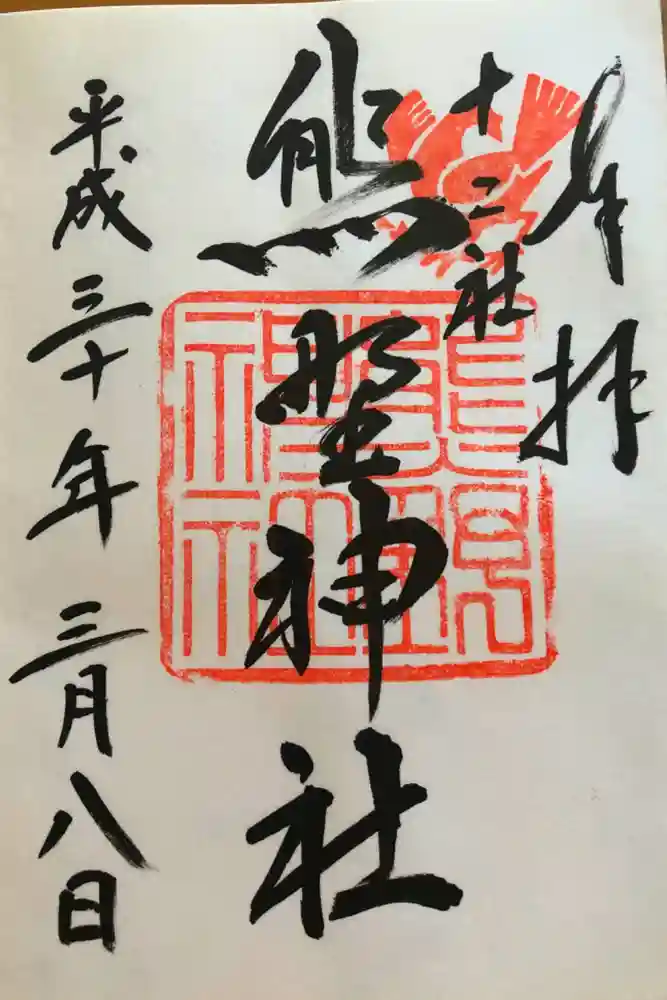 奉拝
十二社
熊野神社
平成三十年三月八日